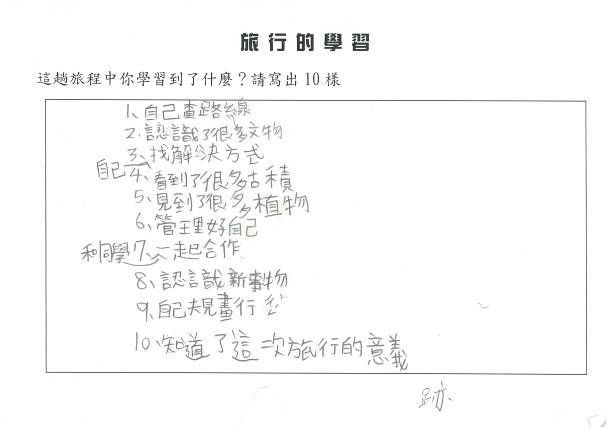 旅行的學習
這趟旅程中你學習到了什麼？請寫出10樣
1、自己查路線
2、認識了很多文物
自己3、找解決方式
4、看到了很多古積
5、見到了很多植物
6、管理好自己
和同學7、一起合作
8、認識新事物
9、自己規畫行
10、知道了這次旅行的意義
跡